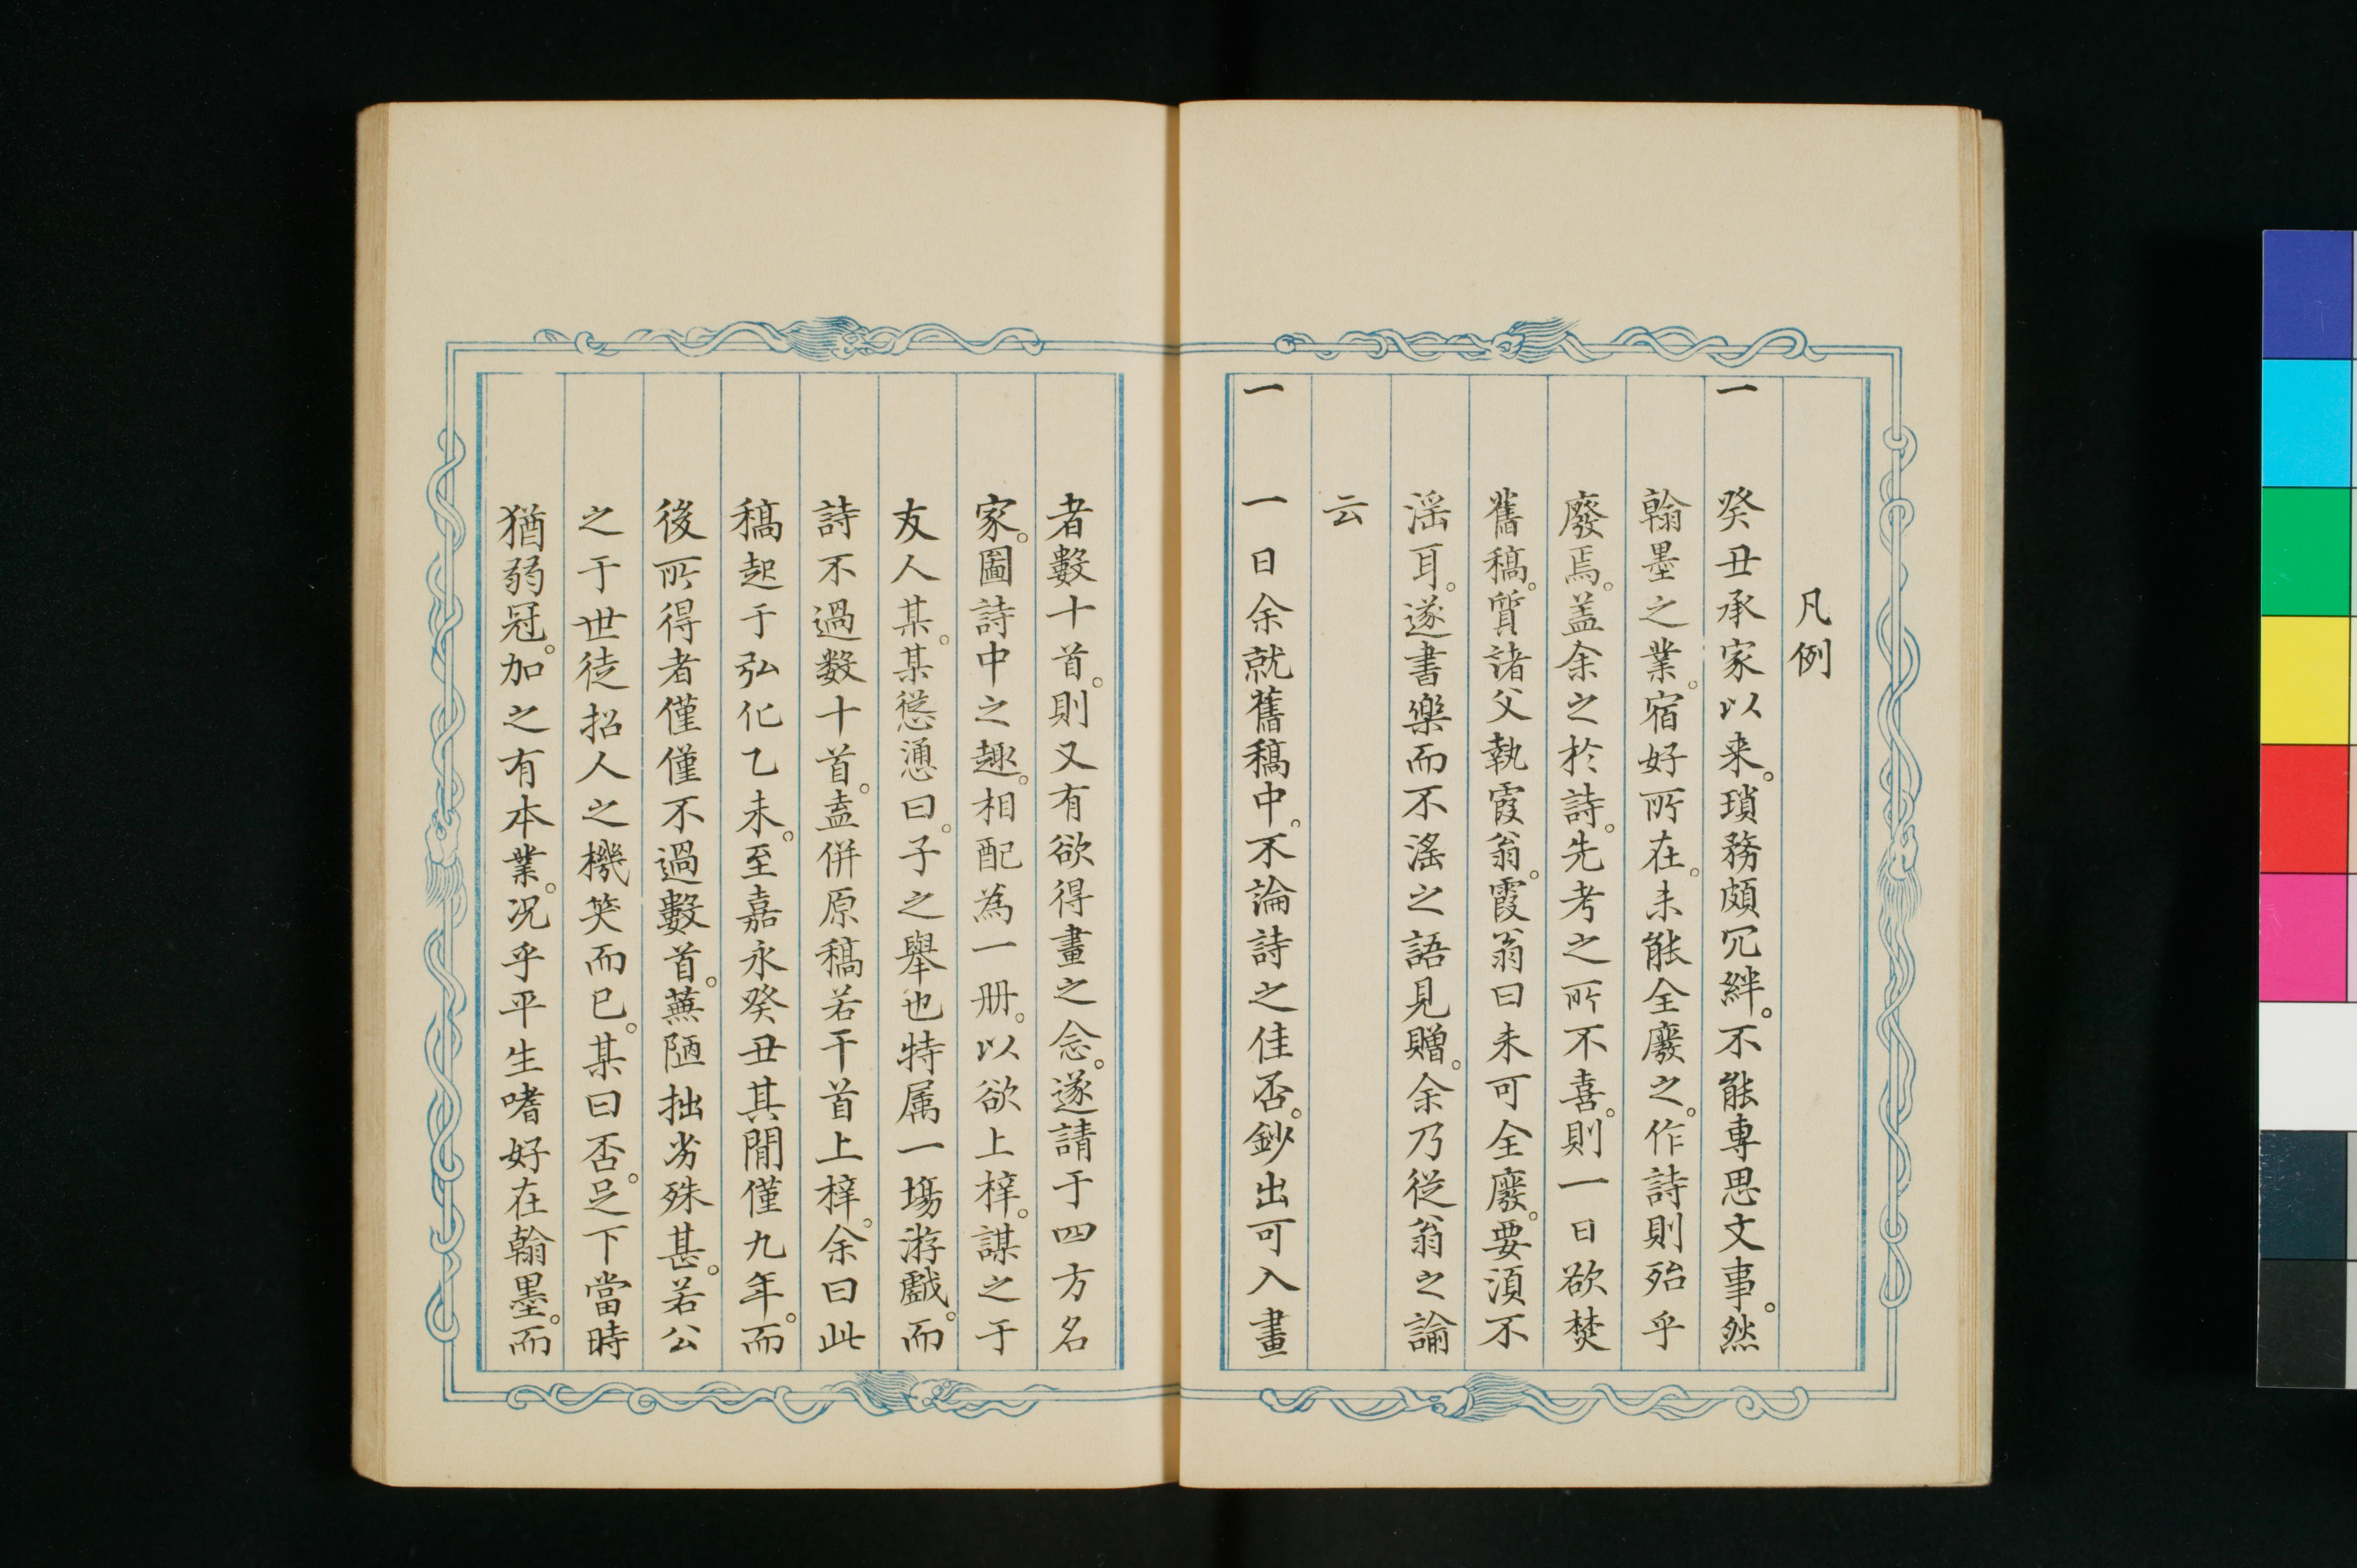 凡例
一 癸丑承家以来。瑣務頗冗絆。不能専思文事。然
翰墨之業。宿好所在。未能全廢之。作詩則殆乎
廢焉。盖余之於詩。先考之所不喜。則一日欲焚
舊稿。質諸父執霞翁。霞翁曰未可全廢。要湏不
滛耳。遂書樂而不滛之語見贈。余乃從翁之論
云
一 一日余就舊稿中。不論詩之佳否。鈔出可入畫
者數十首。則又有欲得畫之念。遂請于四方名
家。圖詩中之趣。相配為一册。以欲上梓。謀之于
友人某。某慫慂曰。子之舉也特属一場游戯。而
詩不過数十首。盍併原稿若干首上梓。余曰此
稿起于弘化乙未。至嘉永癸丑其間僅九年。而
後所得者僅僅不過數首。蕪陋拙劣殊甚。若公
之于世徒招人之機笑而已。某曰否。足下當時
猶弱冠。加之有本業。况乎平生嗜好在翰墨。而